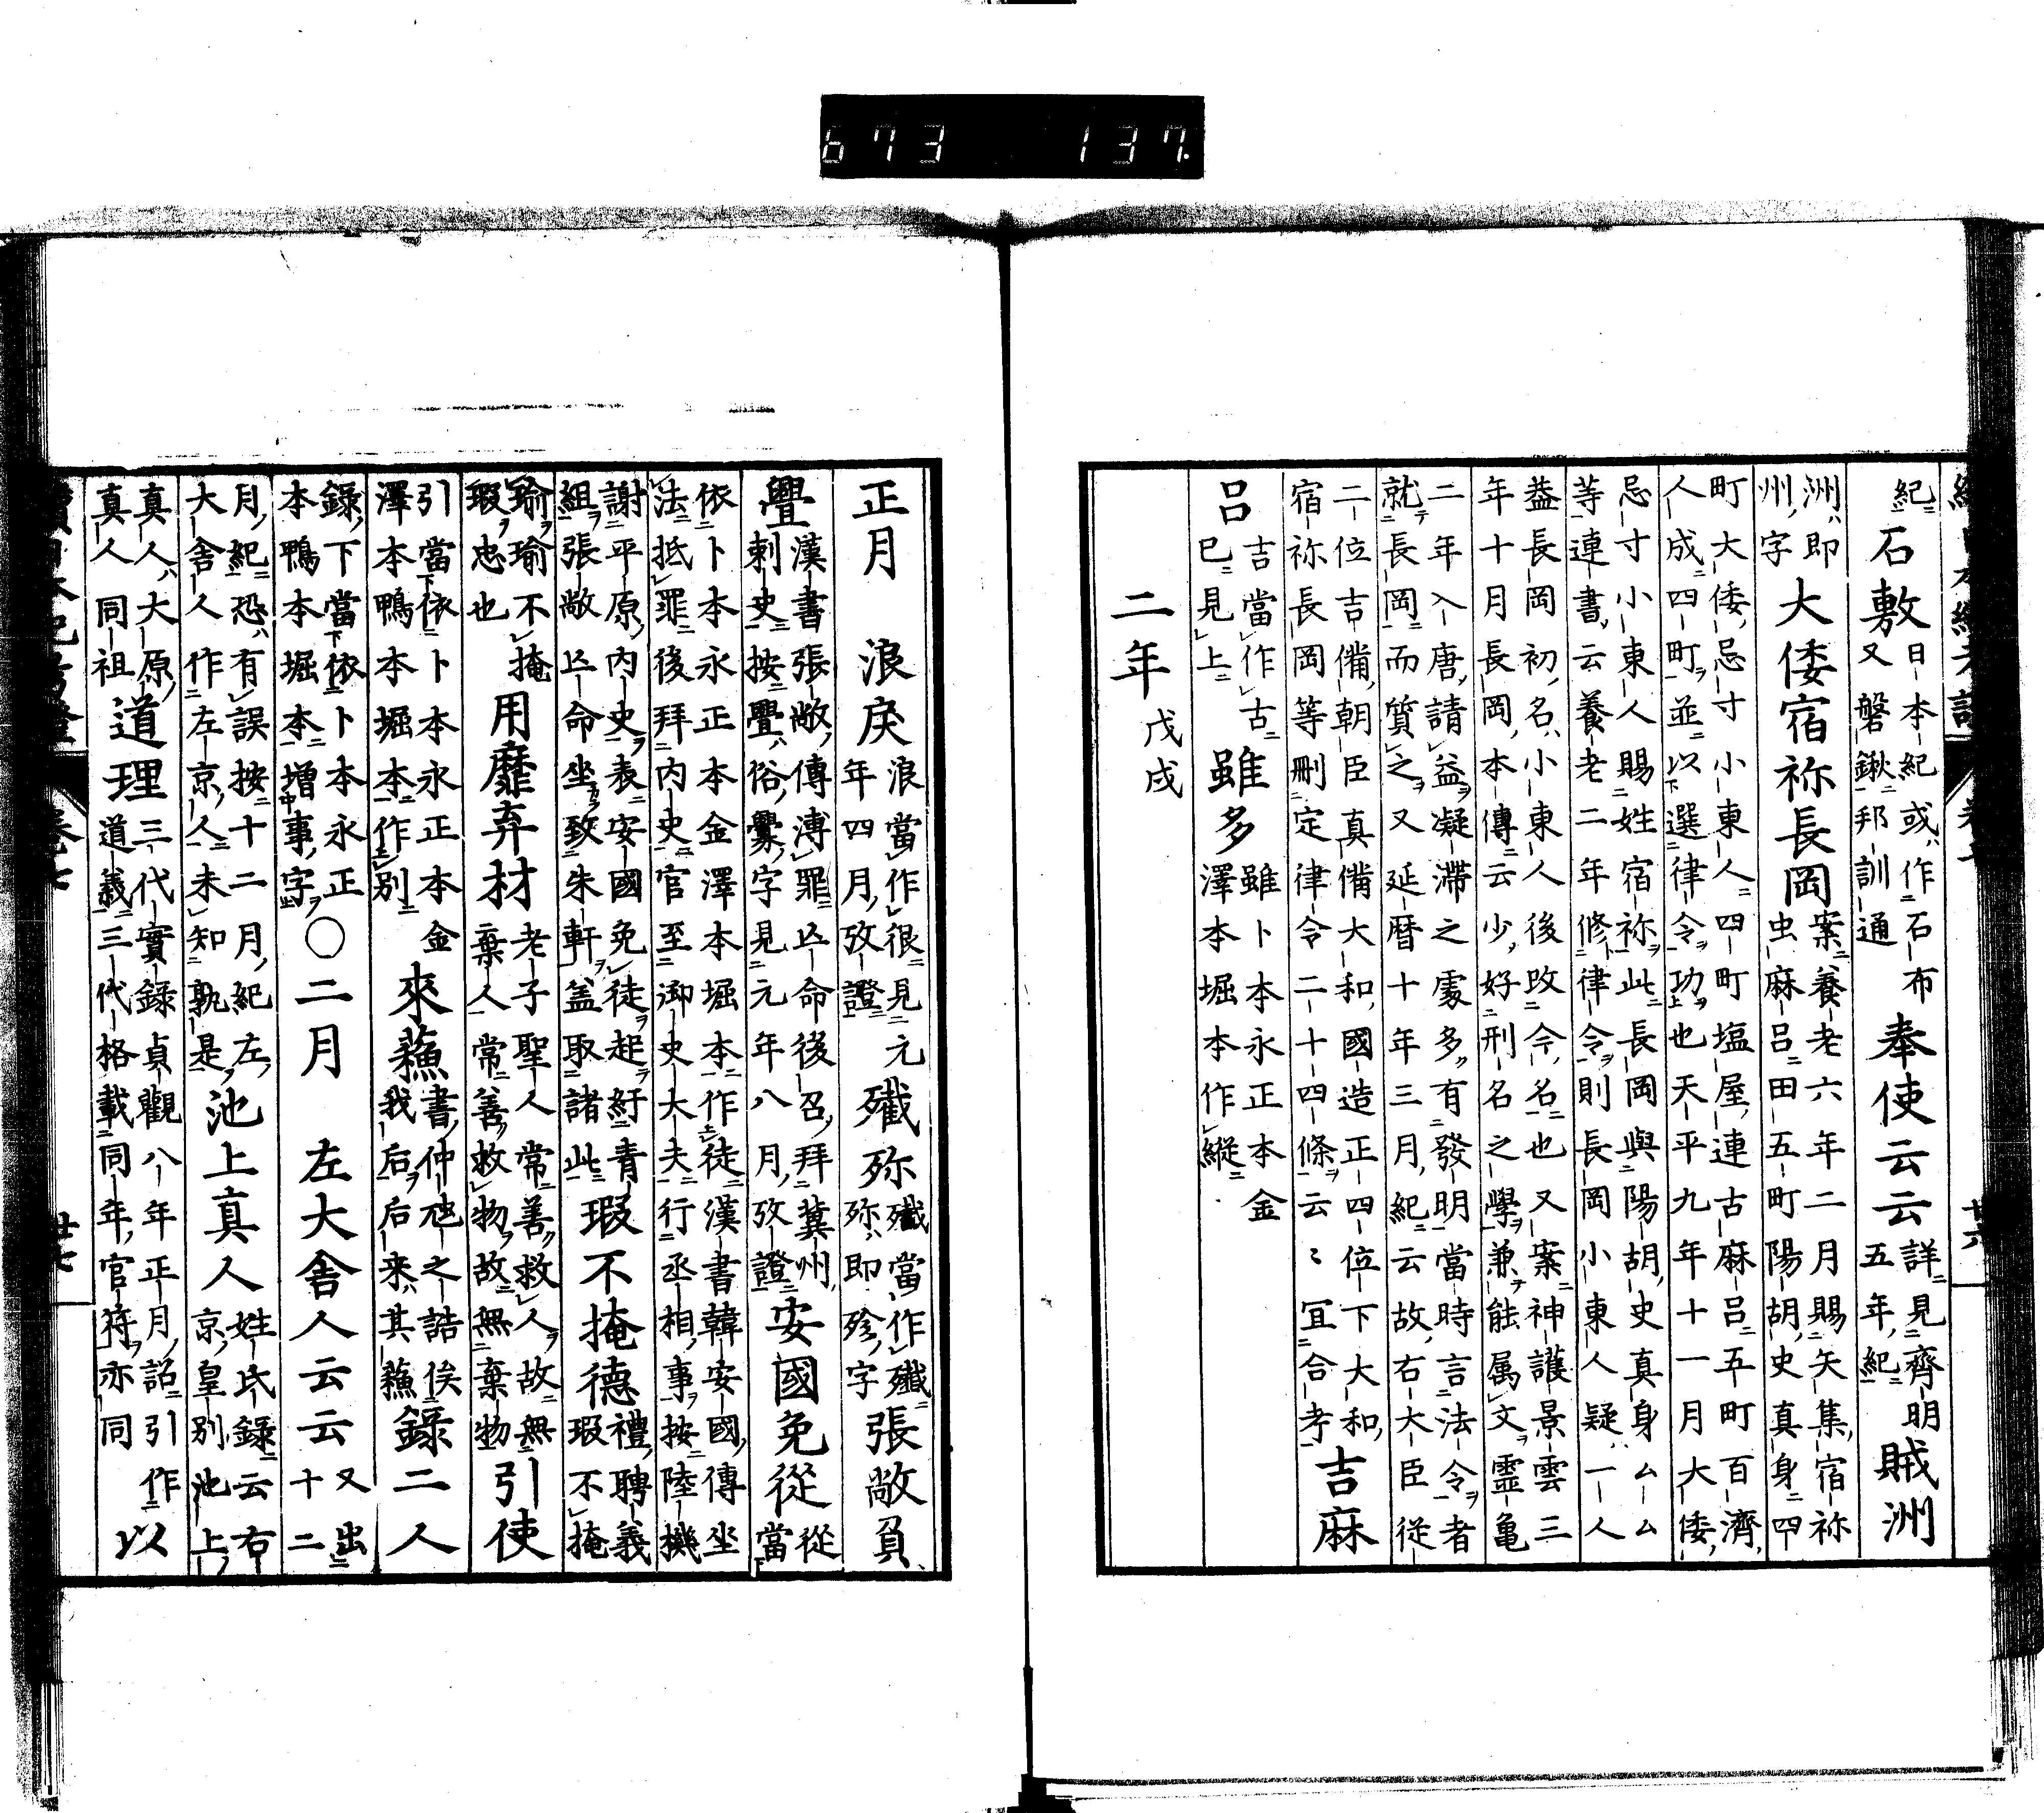 673 137.
紀 石敷 日本紀或作石布又磐鍬邦訓通 奉使云云 詳見齊明五年紀 賊洲
洲即州字 大倭宿祢長岡 案養老六年二月賜矢集宿祢虫麻呂田五町陽胡史真身四
町大倭忌寸小東人四町塩屋連古麻呂五町百濟人成四町並以選律令功也天平九年十一月大倭
忌寸小東人賜姓宿祢此長岡與陽胡史真身ムム等連書云養老二年修律令則長岡小東人疑一人
葢長岡初名小東人後改今名也又案神護景雲三年十月長岡本傳云少好刑名之學兼能属文霊亀
二年入唐請益凝滯之處多有發明當時言法令者就長岡而質之又延暦十年三月紀云故右大臣從
二位吉備朝臣真備大和國造正四位下大和宿祢長岡等刪定律令二十四條云〻宜合考 吉麻
呂 吉當作古已見上 雖多 雖卜本永正本金澤本堀本作縦
二年 戊戌
正月 浪戾 浪當作很見元年四月攷證 殱殄 殱當作殲殄即殄字 張敞負
舋 漢書張敞傳溥罪亾命後召拜冀州刺史按舋俗釁字見元年八月攷證 安國免從 從當
依卜本永正本金澤本堀本作徒漢書韓安國傳坐法抵罪後拜内史官至御史大夫行丞相事按陸機
謝平原内史表安國免徒起紆青組張敞亾命坐致朱軒盖取諸此 瑕不掩德 禮聘義瑕不掩
瑜瑜不掩瑕忠也 用靡弃材 老子聖人常善救人故無棄人常善救物故無棄物 引使
引當依卜本永正本金澤本鴨本堀本作別 來蘓 書仲虺之誥徯我后后来其蘓 錄二人
錄下當依卜本永正本鴨本堀本增事字 ○二月 左大舍人云云 又出十二
月紀恐有誤按十二月紀左大舍人作左京人未知孰是 池上真人 姓氏錄云右京皇別池上
真人大原真人同祖 道理 三代實錄貞觀八年正月詔引作道義三代格載同年官符亦同 以